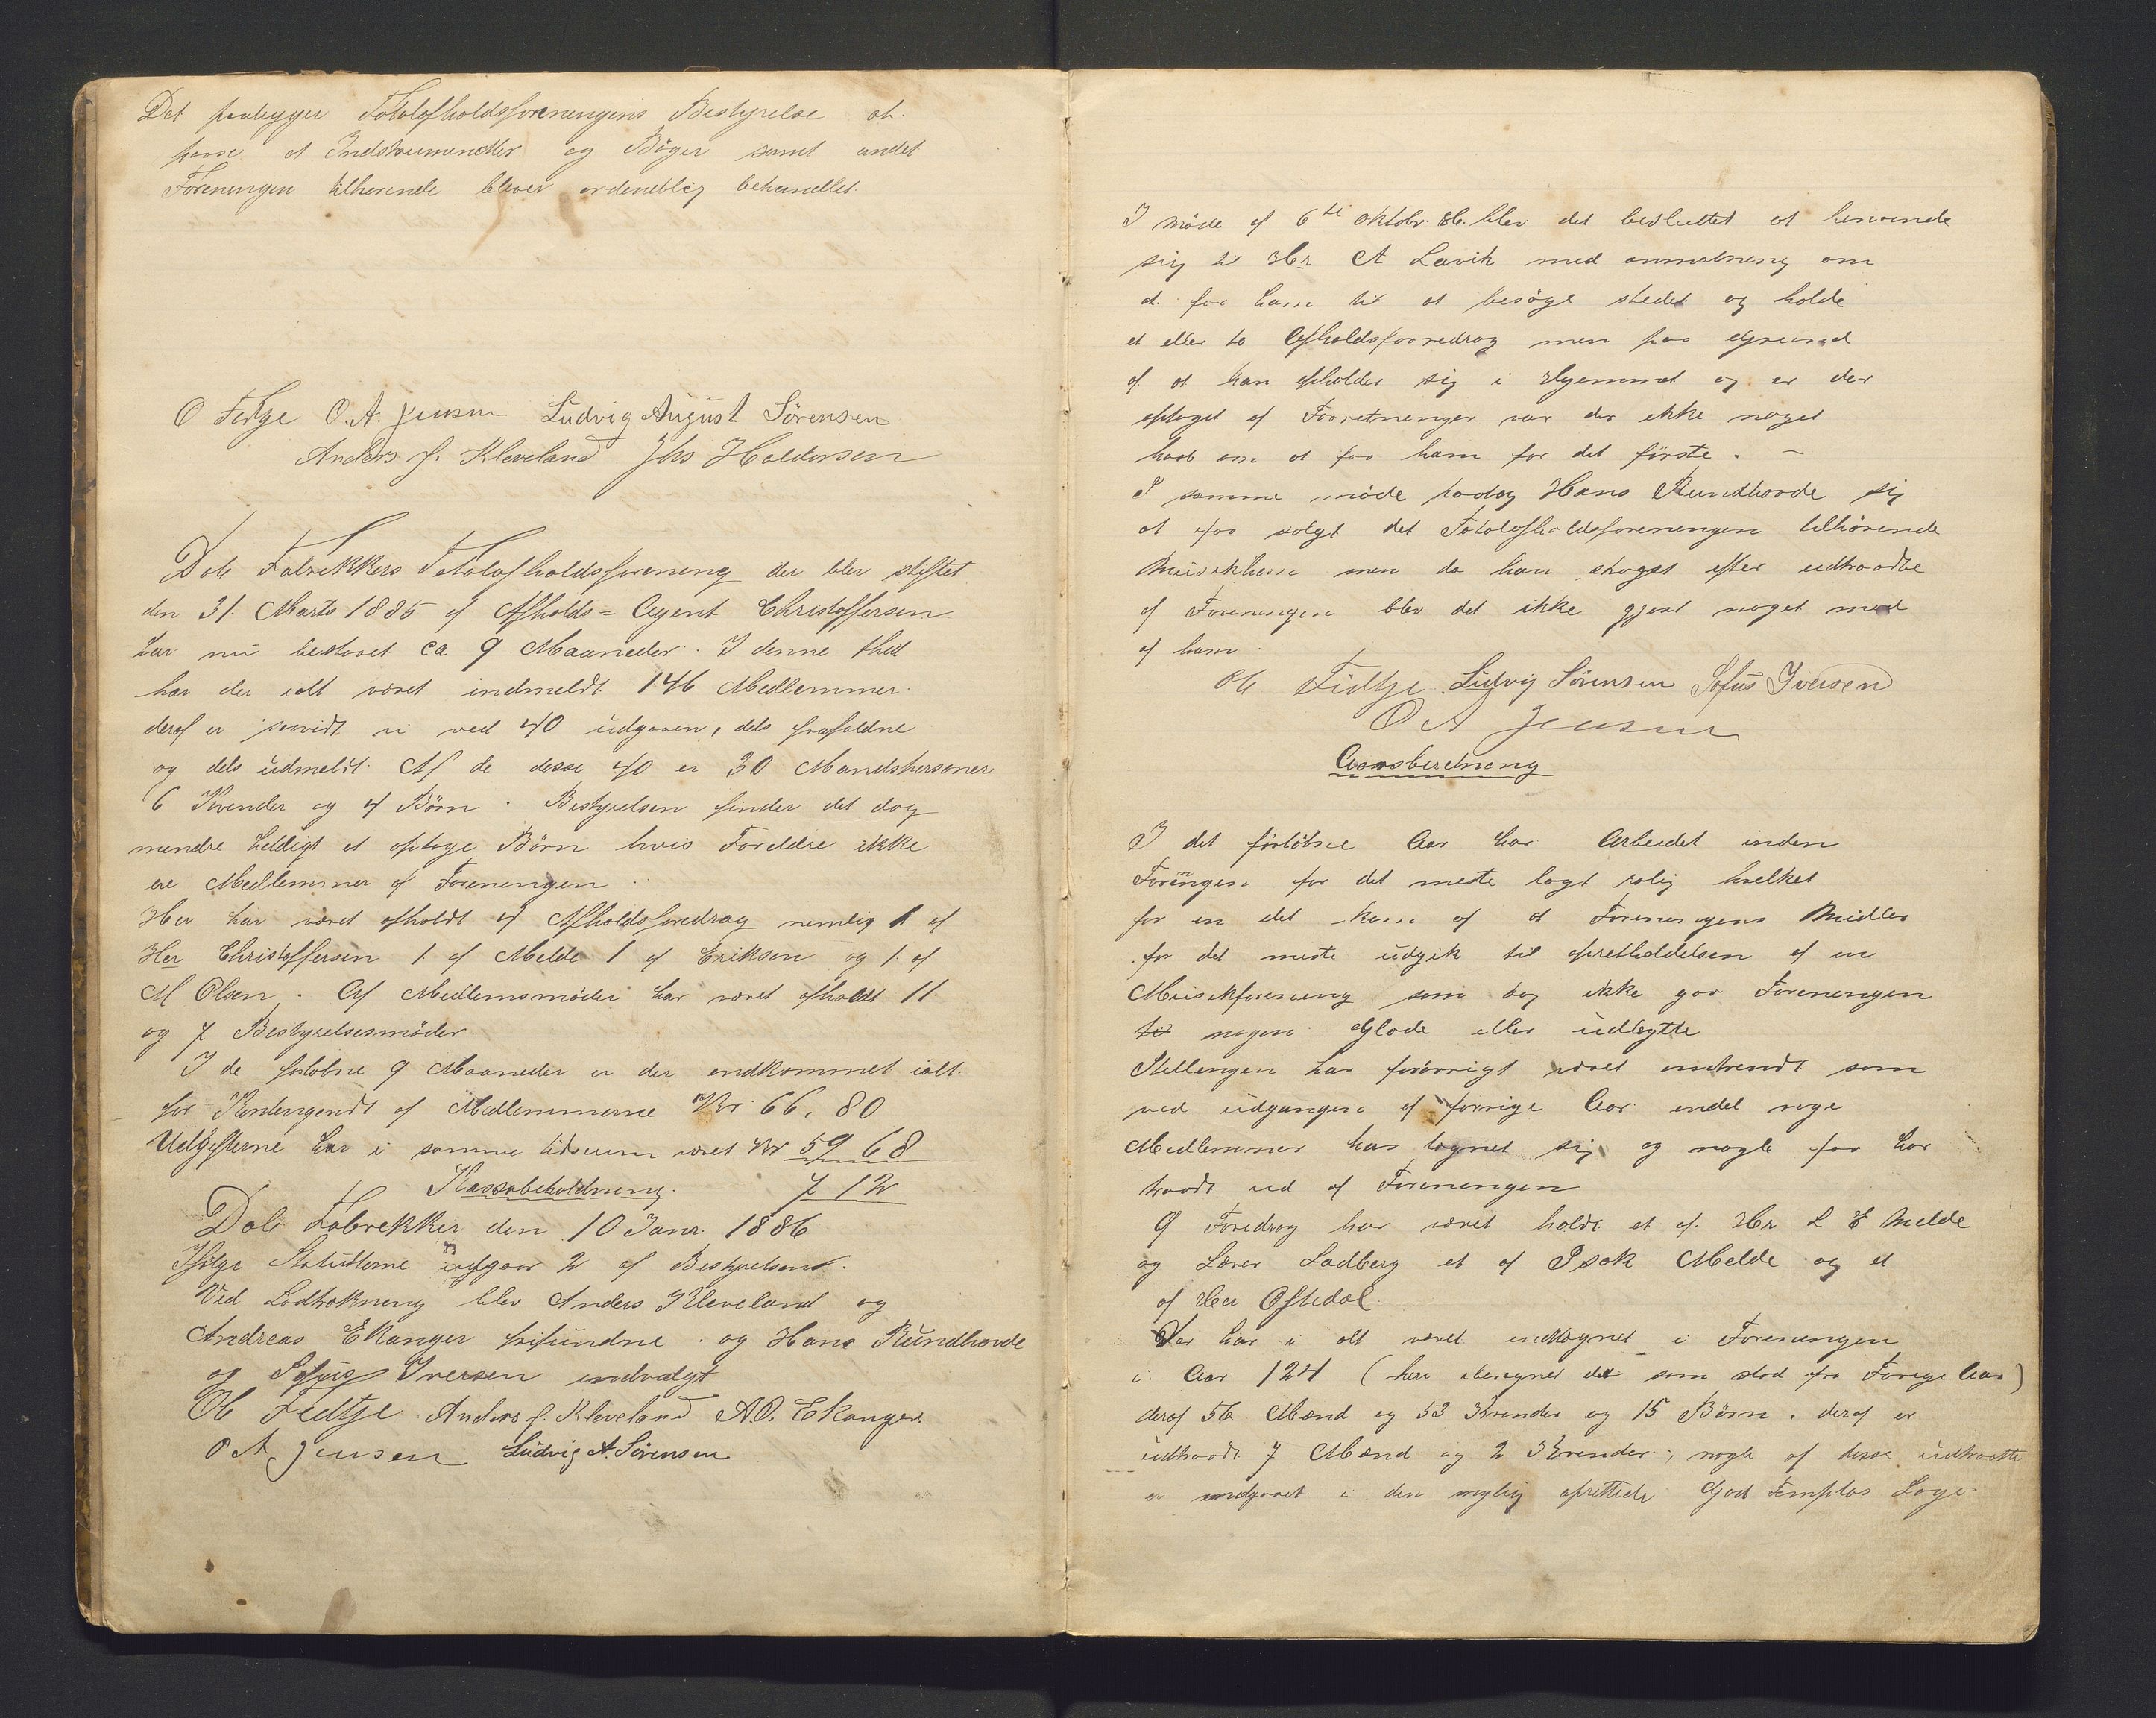 Det paaligger Totalafholdsforeningens Bestyrelse at
passe at Indstrumenter og Böger samt andet
Foreningen tilhørende bliver ordentlig behandlet.
O Fidtje O. A. Jensen Ludvig August Sörensen
Anders J. Kleveland Jhs Haldorsen
Dale Fabrikkers Totalafholdsforening der blev stiftet
den 31. Marts 1885 af Afholds=Agent Christoffersen
har nu bestaaet ca 9 Maaneder. I denne thid
har der ialt været indmeldt 146 Medlemmer.
deraf er saavidt vi ved 40 udgaaen, dels frafaldne
og dels udmeldt. Af de desse 40 er 30 Mandspersoner
6 Kvender og 4 Börn. Bestyrelsen finder det dog
mindre heldigt at optage Börn hvis Foreldre ikke
ere Medlemmer af Foreningen.
Her har været afholdt 4 Afholdsforedrag nemlig 1 af
Her Christoffersen 1 af Melde 1 af Eriksen og 1 af
M Olsen. Af Medlemsmöder har været afholdt 11
og 7 Bestyrelsesmöder
I de forløbne 9 Maaneder er der indkommet ialt
for Kontengendt af Medlemmerne Kr 66,80
Udgifterne har i samme tidsrum været Kr 59 68
Kassabeholdning. 7 12
Dale Fabrikker den 10 Janr. 1886
Ifölge Statutterne udgaar 2 af Bestyrelsen.
Ved Lodtrekning blev Anders Kleveland og
Andreas Ekanger frifundne. og Hans Rundhovde
og Sofus Iversen indvalgt
Ole Fidtje Anders J. Kleveland A.O. Ekanger.
O A Jensen Ludvig A. Sörensen
I möde af 6te Oktobr. 86. blev det besluttet at henvende
sig til Hr A Lavik med anmodning om
at faa ham til at besöge stedet og holde
et eller to Afholdsforedrag men paa Grund
af at han opholder sig i Hjemmet og er der
optaget af Forretninger var der ikke noget
haab om at faa ham for det förste. –
I samme möde paatog Hans Rundhovde sig
at faa solgt det Totalafholdsforeningen tilhörende
Musikhorn men da han straget efter udtraadte
af Foreningen blev det ikke gjort noget med
af ham.
Ole Fidtje Ludvig Sörensen Sofus Iversen
O A Jensen
Aarsberetning
I det forlöbne Aar har Arbeidet inden
Foreningen for det meste lagt rolig hvelket
for en del kom af at Foreningens Midler
for det meste udgik til opretholdelsen af en
Musikforening som dog ikke gav Foreningen
til nogen Glæde eller udbytte
Stellengen har forövrigt været omtrendt som
ved udgangen af forrige Aar endel nye
Medlemmer har tegnet sig og nogle faa har
traadt ud af Foreningen
9 Foredrag har været holdt et af Hr L E Melde
og Lærer Ladberg et af Isak Melde og et
af Her Oftedal.
Der har i alt været indtegnet i Foreningen
i Aar 124 (heri iberegnet det som stod fra Forrige Aar)
deraf 56 Mænd og 53 Kvender og 15 Börn. deraf er
udtraadt 7 Mænd og 2 Kvender, nogle af disse udtraatte
er indgaaet i den nylig oprettede God Templar Loge.